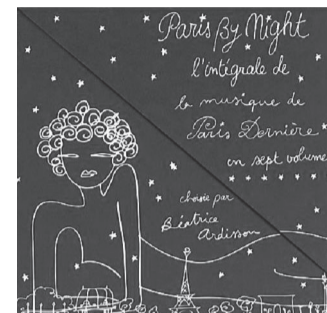 Paris By Night
l'intégrale de
la musique de
Paris Dernière
en sept volumes
choisie par
Béatrice
Ardisson